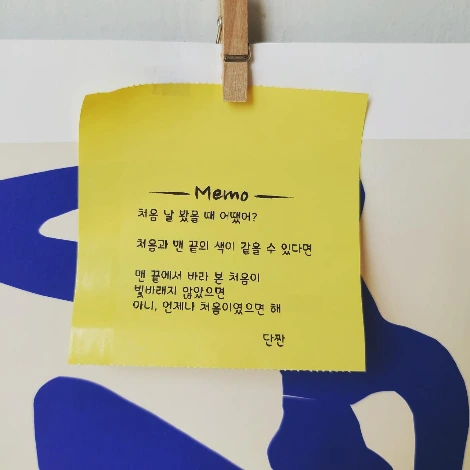 Memo
처음 날 봤을 때 어땠어?
처음과 맨 끝의 색이 같을 수 있다면
맨 끝에서 바라 본 처음이
빛바래지 않았으면
아니, 언제나 처음이였으면 해
단짠